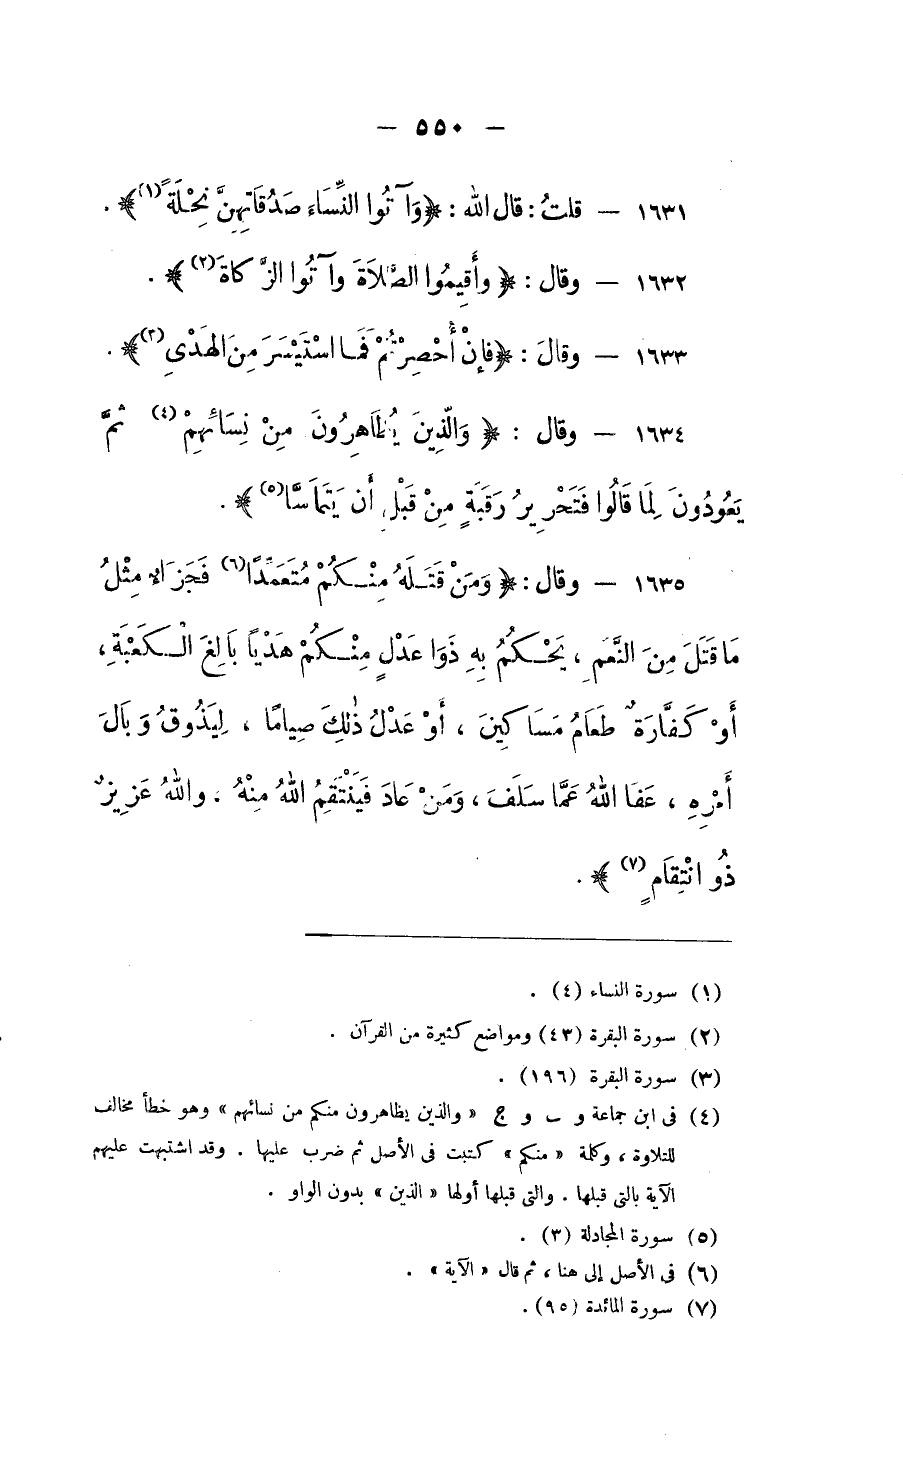 — ٥٥٠ —
١٦٣١ — قلتُ : قال الله : ﴿ وَآتُوا النِّسَاءَ صَدُقَاتِهِنَّ نِحْلَةً (١)﴾ .
١٦٣٢ — وقال : ﴿ وأَقِيمُوا الصَّلَاةَ وآتُوا الزَّكاةَ (٢)﴾ .
١٦٣٣ — وقالَ : ﴿فَإِنْ أُحْصِرْتُمْ فَمَا اسْتَيْسَرَ مِنَ الهَدْىِ (٣)﴾ .
١٦٣٤ — وقال : ﴿ وَالَّذِينَ يُظَاهِرُونَ مِنْ نِسَائِهِمْ (٤) ثُمَّ
يَعُودُونَ لِمَا قَالُوا فَتَحْرِيرُ رَقَبَةٍ مِنْ قَبْلِ أَن يَتَمَاسَّا (٥)﴾ .
١٦٣٥ — وقال : ﴿ وَمَنْ قَتَلَهُ مِنْكُمْ مُتَعَمِّدًا (٦) فَجَزَاء مِثْلُ
مَا قَتَلَ مِنَ النَّعَمِ ، يَحْكُمُ بِهِ ذَوَا عَدْلٍ مِنْكُمْ هَدْيًا بَالِغَ الْكَعْبَةِ ،
أَوْ كَفَّارَةٌ طَعَامُ مَسَاكِينَ ، أَوْ عَدْلُ ذٰلِكَ صِيامًا ، لِيَذُوقَ وَبَالَ
أَمْرِهِ ، عَفَا اللهُ عَمَّا سَلَفَ ، وَمَنْ عَادَ فَيَنْتَقِمُ اللهُ مِنْهُ . واللهُ عَزِيزٌ
ذُو انْتِقَامٍ (٧) ﴾ .
(١) سورة النساء (٤) .
(٢) سورة البقرة (٤٣) ومواضع كثيرة من القرآن .
(٣) سورة البقرة (١٩٦) .
(٤) فى ابن جماعة و ب و ج « والذين يظاهرون منكم من نسائهم » وهو خطأ مخالف
للتلاوة ، وكلمة « منكم » كتبت فى الأصل ثم ضرب عليها . وقد اشتبهت عليهم
الآية بالتى قبلها . والتى قبلها أولها « الذين » بدون الواو .
(٥) سورة المجادلة (٣) .
(٦) فى الأصل إلى هنا ، ثم قال « الآية » .
(٧) سورة المائدة (٩٥) .